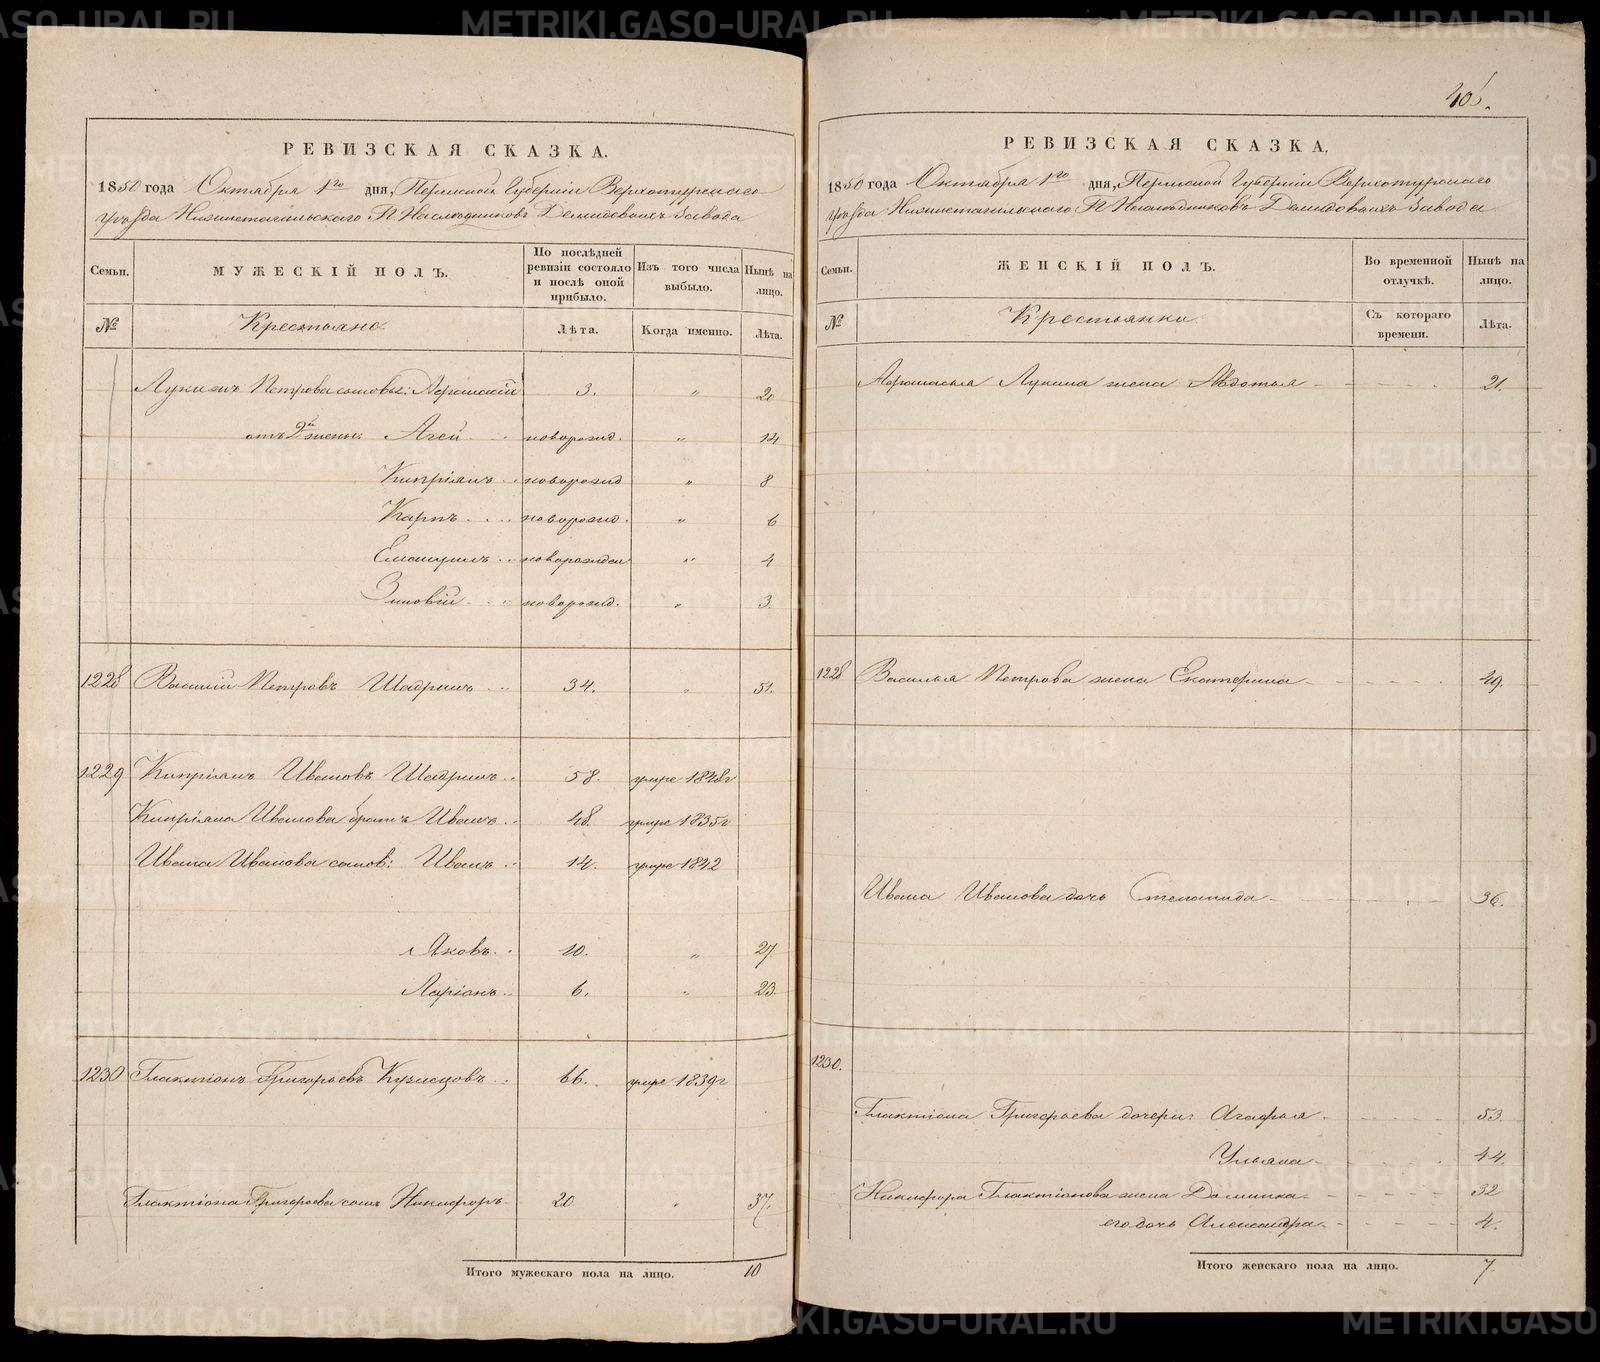 РЕВИЗСКАЯ СКАЗКА.
1850 года Октября 1го дня, Пермской Губерніи Верхотурскаго
уѣзда Нижнетагильскаго Г. Наслѣдниковъ Демидовыхъ Завода
Семьи. МУЖЕСКІЙ ПОЛЪ. По послѣдней ревизіи состояло и послѣ оной прибыло. Изъ того числа выбыло. Нынѣ на лицо.
№ Крестьяне. Лѣта. Когда именно. Лѣта.
Петрова сыновья: 3. " 20
отъ 2й жены: Агей новорожд. " 14
Кипріянъ новорожд " 8
Карпъ новорожд. " 6
Емануилъ новорожден " 4
Зиновій новорожд. " 3.
1228 Василій Петровъ Шадринъ 34. " 51.
1229 Кипріянъ Ивановъ Шадринъ 58. умре 1848г
Кипріяна Иванова братъ Иванъ 48. умре 1835г
Ивана Иванова сынов: Иванъ 14. умре 1842
Яковъ 10. " 27.
Ларіонъ 6. " 23.
1230 Галактіонъ Григорьевъ Кузнецовъ 66. умре 1839г
Галактіона Григорьева сынъ Никифоръ 20. " 37.
Итого мужескаго пола на лицо. 10
РЕВИЗСКАЯ СКАЗКА.
1850 года Октября 1го дня, Пермской Губерніи Верхотурскаго
уѣзда Нижнетагильскаго Г. Наслѣдниковъ Демидовыхъ Завода
Семьи. ЖЕНСКІЙ ПОЛЪ. Во временной отлучкѣ. Нынѣ на лицо.
№ Крестьянки Съ котораго времени. Лѣта.
Афонасья Лукина жена Авдотья 21.
1228 Василья Петрова жена Екатерина 49.
Ивана Иванова дочь Степанида 36.
1230.
Галактіона Григорьева дочери: Агафья 53.
Ульяна 44.
Никифора Галактіонова жена Домника 32
его дочь Александра 4.
Итого женскаго пола на лицо. 7
METRIKI.GASO-URAL.RU